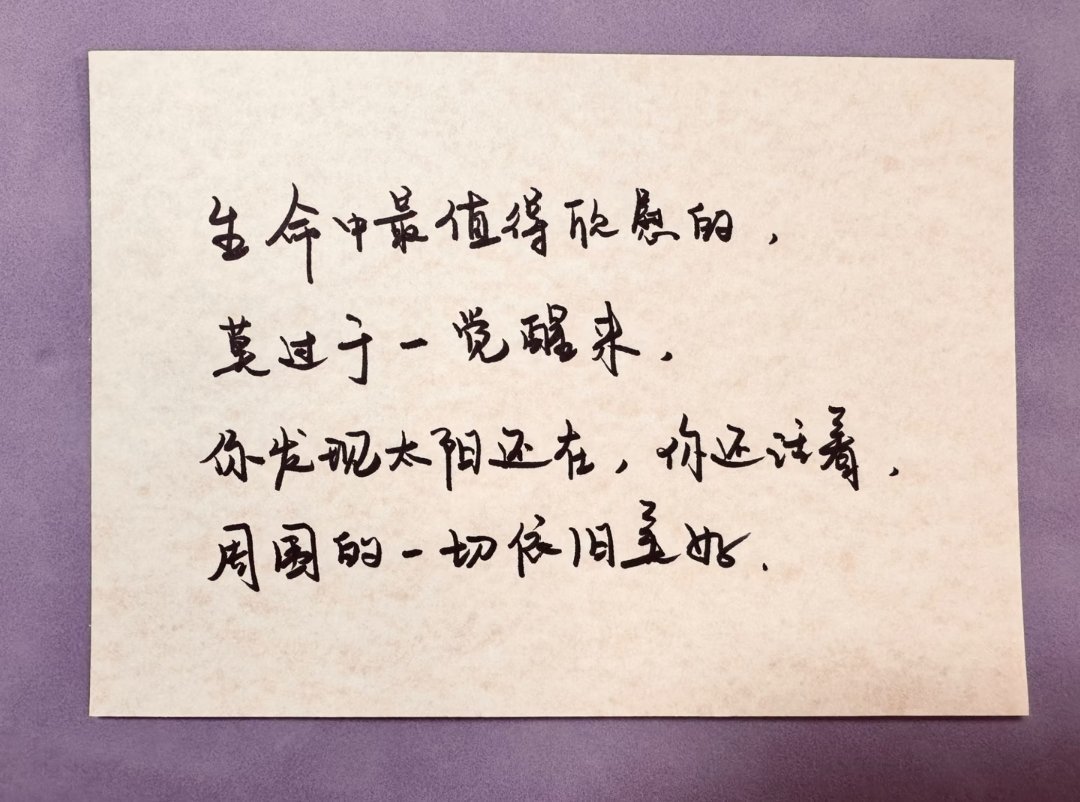 生命中最值得欣慰的，
莫过于一觉醒来，
你发现太阳还在，你还活着，
周围的一切依旧美好.